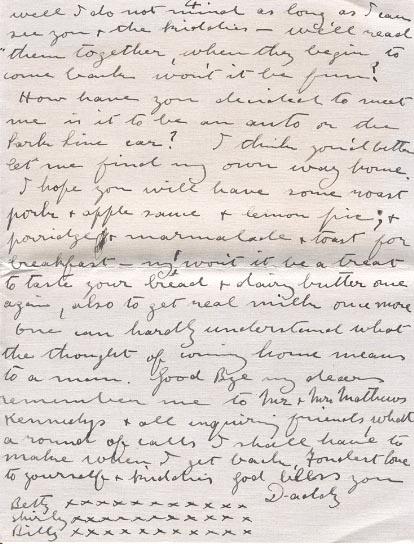 4
well I do not mind as long as I can
see you & the kiddies – we'll read
"them together, when they begin to
come back won't it be fun?
How have you decided to meet
me is it to be an auto or the
Park Line car? I think you'd better
let me find my own way home.
I hope you will have some roast
pork & apple sauce & lemon pie; &
porridge & marmalade & toast for
breakfast – my! won't it be a treat
to taste your bread & dairy butter once
again, also to get real milk once more
One can hardly understand what
the thought of coming home means
to a man. Good Bye my dears
remember me to Mr & Mrs Mathews
Kennedys & all inquiring friends what
a round of calls I shall have to
make when I get back. Fondest love
to yourself & kiddies God bless you
Daddy
Betty x x x x x x x x x x x
Shirley x x x x x x x x x x x
Billy x x x x x x x x x x x